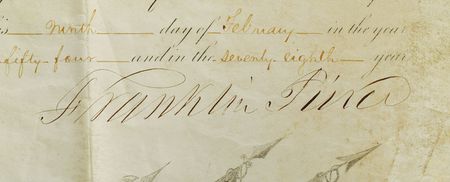 is Ninth day of February in the year
fifty four and in the seventy eighth year
Franklin Pierce